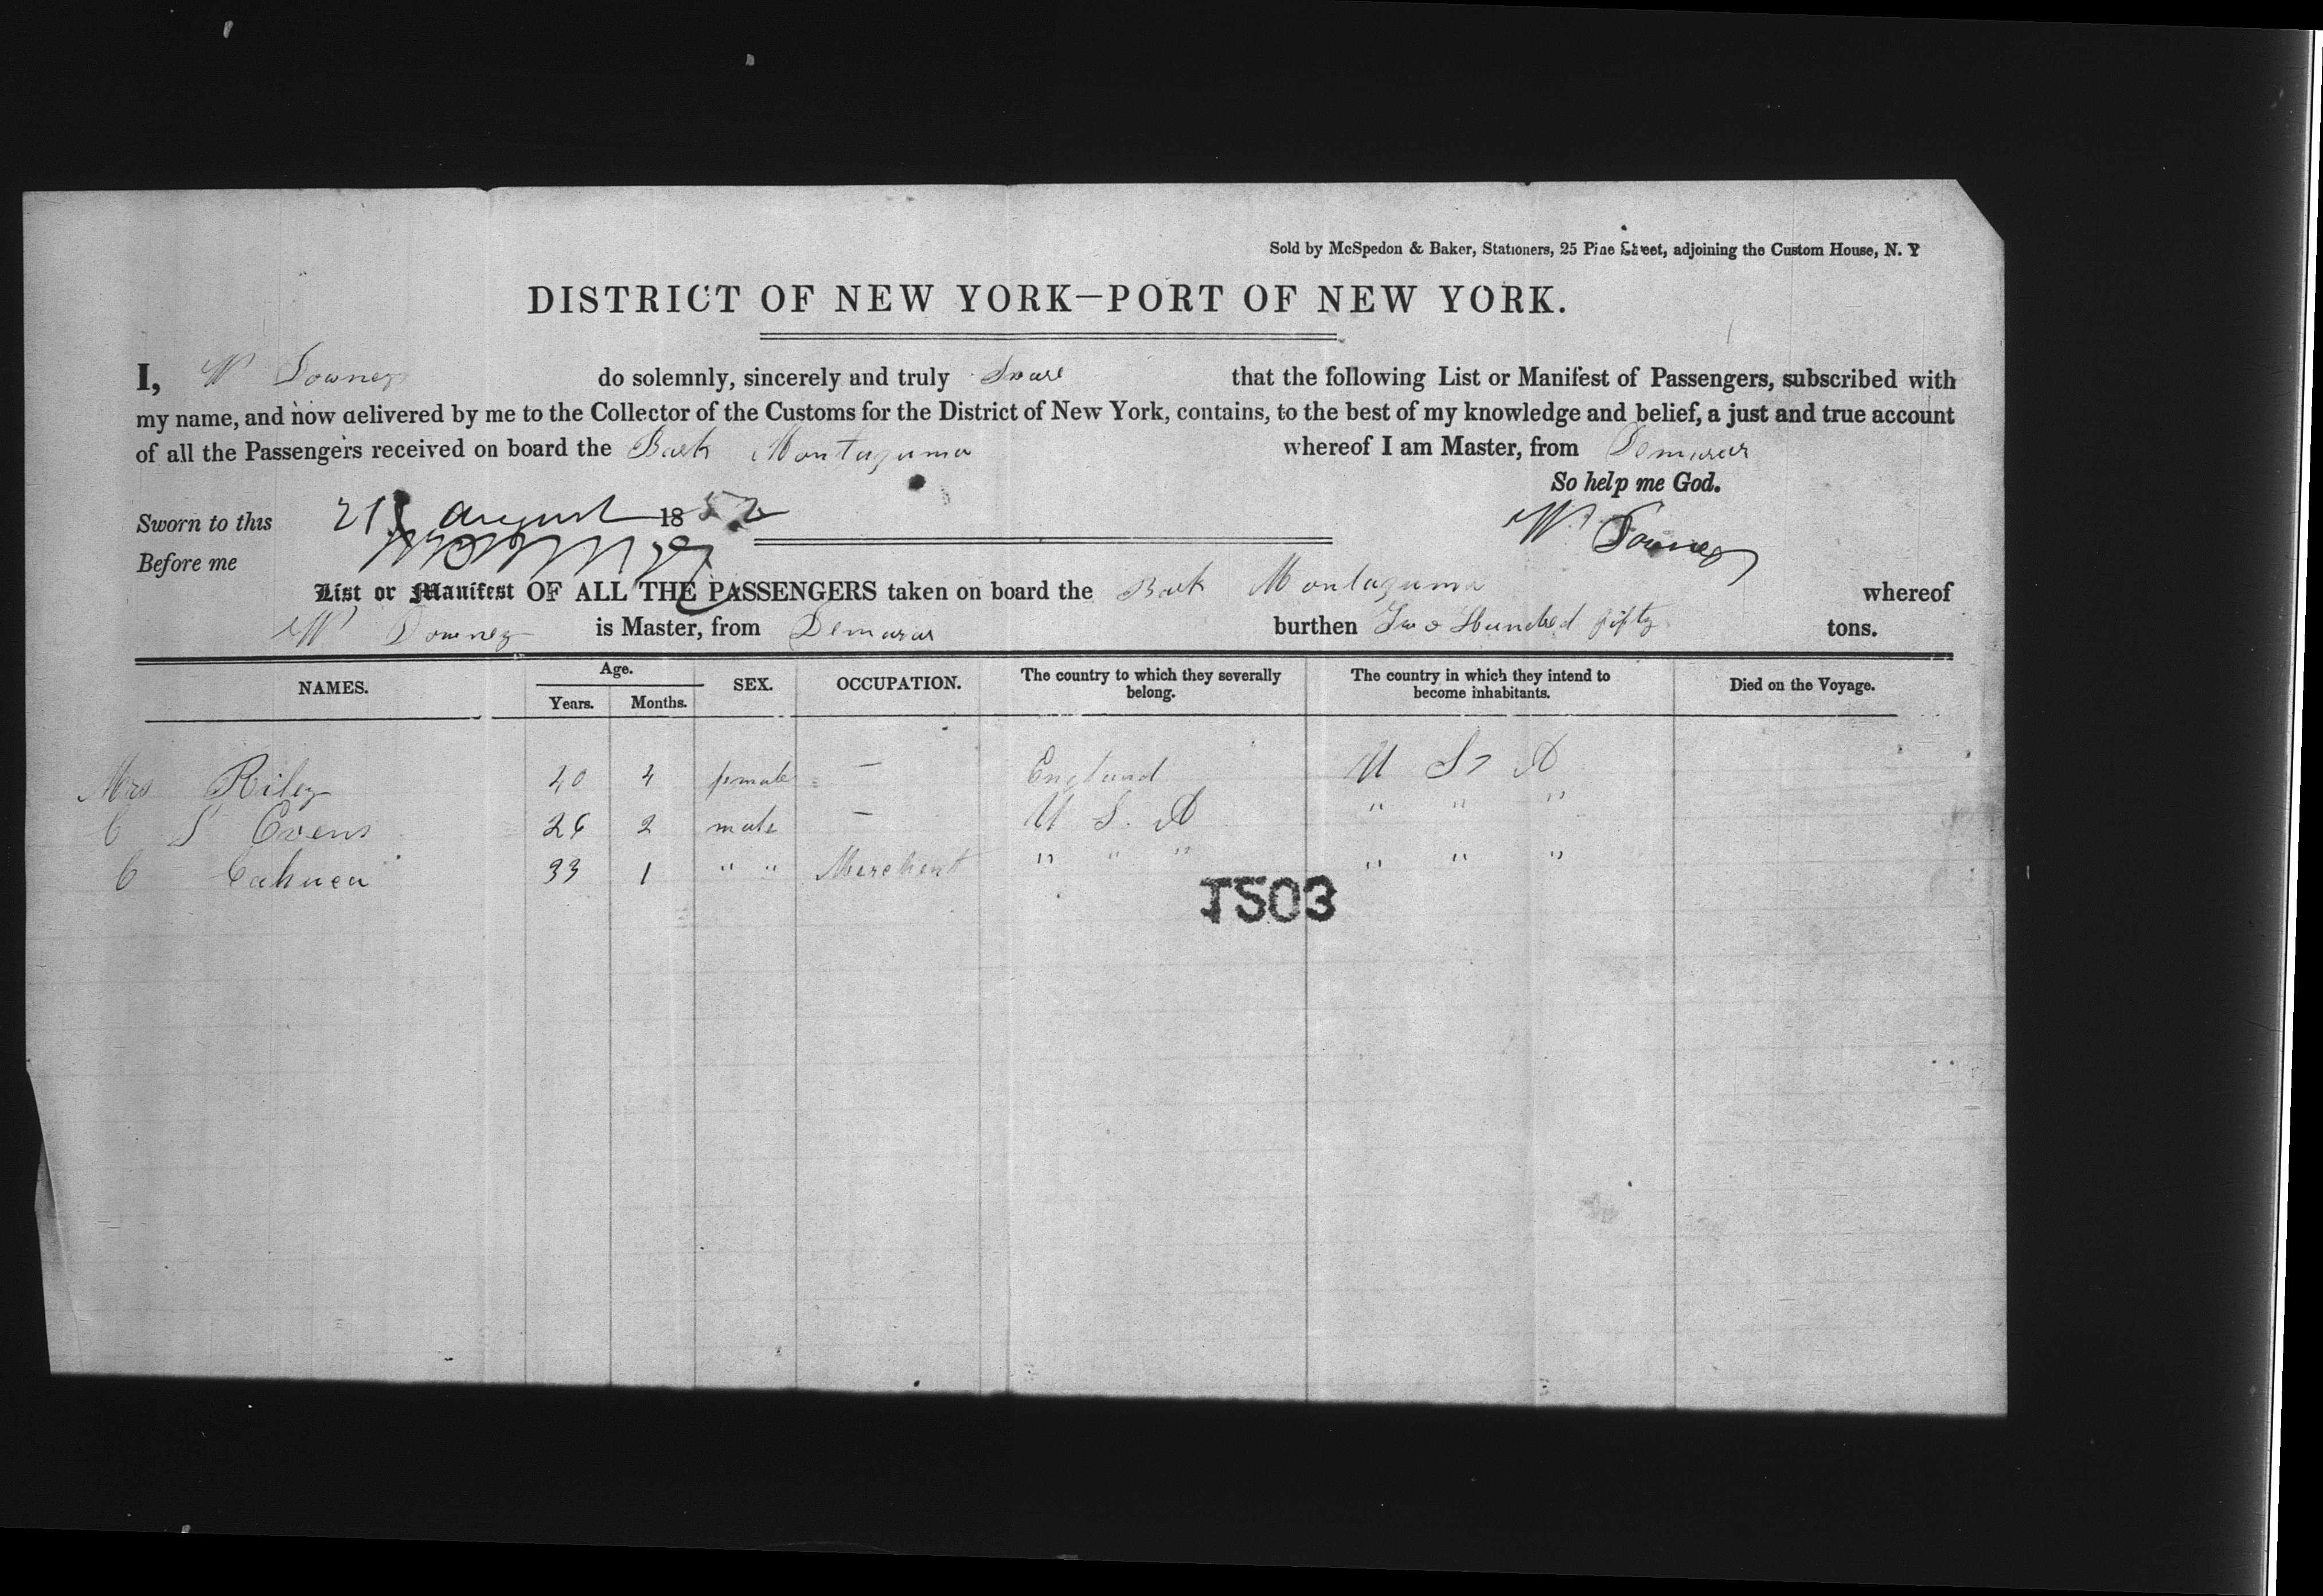 Sold by McSpedon & Baker, Stationers, 25 Pine Street, adjoining the Custom House, N. Y
DISTRICT OF NEW YORK—PORT OF NEW YORK.
I, W Downey do solemnly, sincerely and truly Swear that the following List or Manifest of Passengers, subscribed with
my name, and now delivered by me to the Collector of the Customs for the District of New York, contains, to the best of my knowledge and belief, a just and true account
of all the Passengers received on board the Bark Montaguma whereof I am Master, from Demarar
So help me God.
Sworn to this 21 August 1852
W Downey
Before me
List or Manifest OF ALL THE PASSENGERS taken on board the Bark Montaguma whereof
W Downey is Master, from Demarar burthen Two Hundred fifty tons.
NAMES. Age. Years. Months. SEX. OCCUPATION. The country to which they severally belong. The country in which they intend to become inhabitants. Died on the Voyage.
Mrs Riley 40 4 female — England U S A
C S Evens 26 2 male — U S. A " " "
C 33 1 " " Merchent " " " " " "
T503